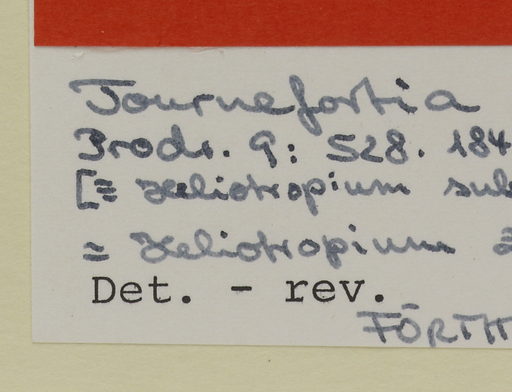 Tournefortia
Prodr. 9: 528. 184
[≡ Heliotropium sub
= Heliotropium
Det. - rev.
FÖRTH